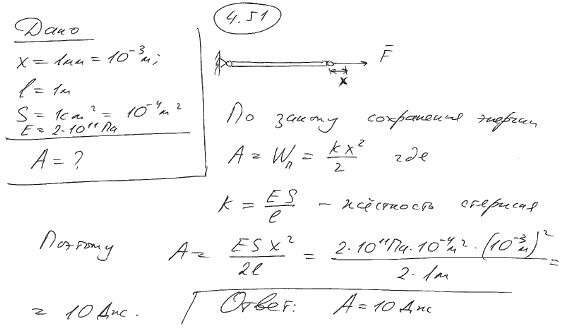 Дано
x = 1мм = 10⁻³м;
l = 1м
S = 1см² = 10⁻⁴м²
E = 2·10¹¹Па
A = ?
4.51
F̄
x
По закону сохранения энергии
A = Wп = kx²/2 где
K = ES/l – жёсткость стержня
Поэтому A = ESx²/2l = 2·10¹¹Па·10⁻⁴м²·(10⁻³м)²/2·1м =
= 10 Дж. Ответ: A = 10 Дж